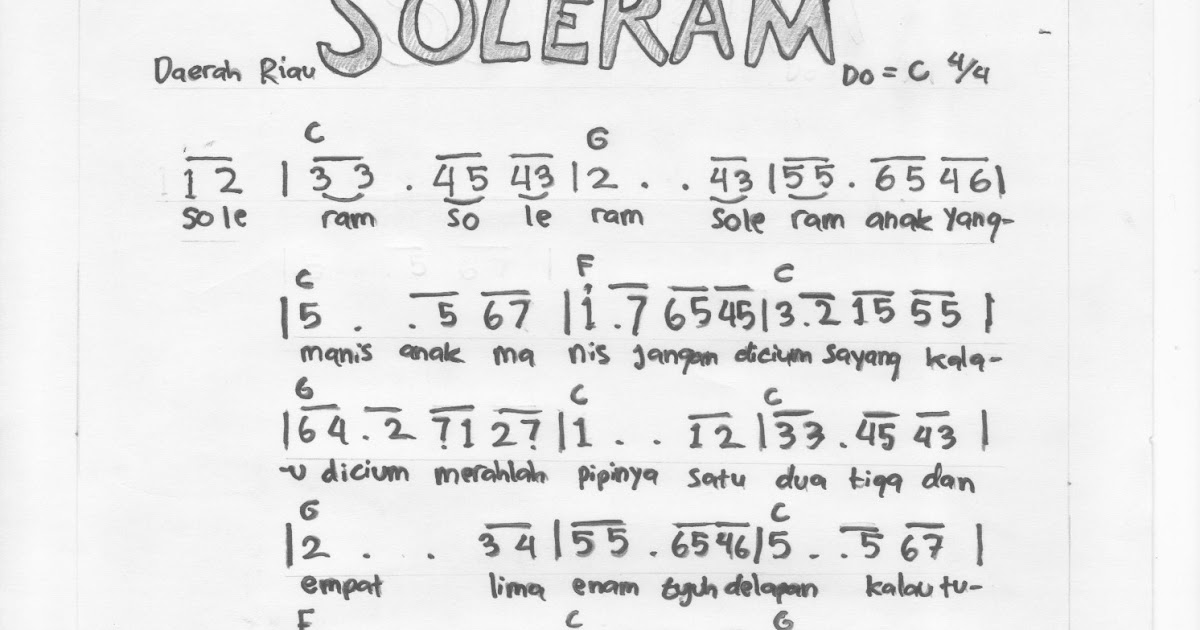 SOLERAM
Daerah Riau Do = C 4/4
C G
1 2 | 3 3 . 4 5 4 3 | 2 . . 4 3 | 5 5 . 6 5 4 6 |
sole ram so le ram sole ram anak yang-
C F C
| 5 . . 5 6 7 | 1 . 7 6 5 4 5 | 3 . 2 1 5 5 5 |
manis anak ma nis jangan dicium sayang kala-
G C C
| 6 4 . 2 7 1 2 7 | 1 . . 1 2 | 3 3 . 4 5 4 3 |
-u dicium merahlah pipinya satu dua tiga dan
G C
| 2 . . 3 4 | 5 5 . 6 5 4 6 | 5 . . 5 6 7 |
empat lima enam tujuh delapan kalau tu-
F C G